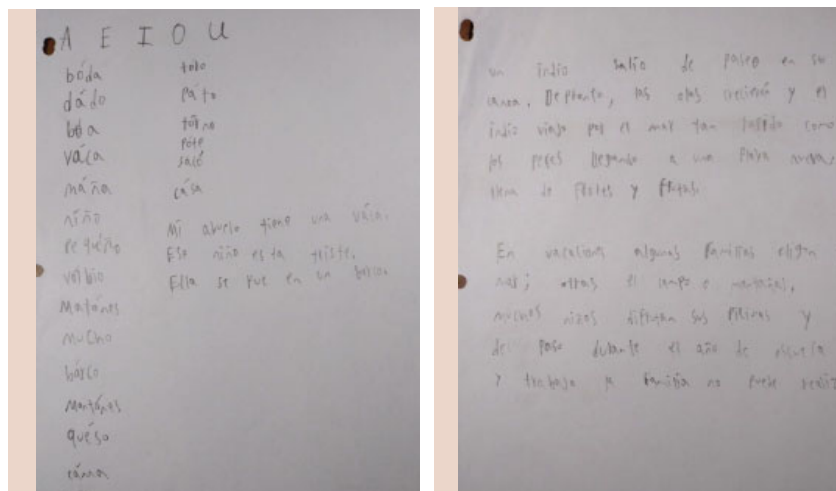 A E I O U
bóda
dádo
váca
máña
niño
pequéño
Matónes
mucho
bárco
Montónes
quéso
toro
páto
tórno
pote
cása
Mi abuelo tiene una váca.
Ese niño esta triste.
Ella se fue en un barco.
un indio salio de paseo en su
canoa, De pronto, las olas crecierón y el
indio viajo por el mar tan rapido como
los peces llegando a una playa nueva,
llena de flores y frutas.
En vacaciones algunas familias eligen
mar; otras el campo o montañas,
muchos niños disfrutan sus
de paso durante el año de escuela
y trabajo la familia no puede